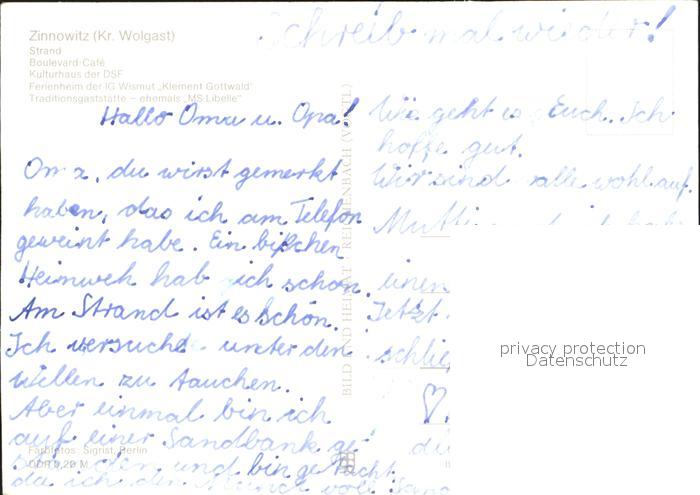 Schreib mal wieder!
Zinnowitz (Kr. Wolgast)
Strand
Boulevard-Café
Kulturhaus der DSF
Ferienheim der IG Wismut „Klement Gottwald"
Traditionsgaststätte – ehemals „MS Libelle"
Hallo Oma u. Opa!
Oma, du wirst gemerkt
haben, das ich am Telefon
geweint habe. Ein bißchen
Heimweh hab ich schon.
Am Strand ist es schön.
Ich versuche unter den
Wellen zu tauchen.
Aber einmal bin ich
auf einer Sandbank ge-
und bin
da ich den voll Sand
Wie geht es Euch. Ich
hoffe gut.
Wir sind alle wohl auf.
Mutti
einen
Jetzt
schlie
BILD UND HEIMAT REICHENBACH (VOGTL)
Farbfotos: Sigrist, Berlin
DDR 0,20 M
privacy protection
Datenschutz